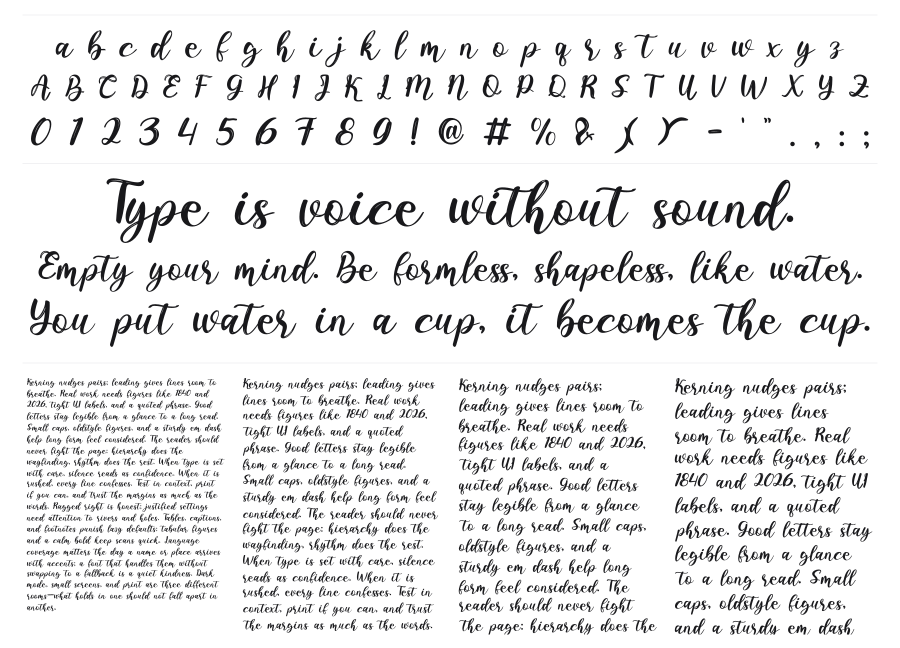 a b c d e f g h i j k l m n o p q r s t u v w x y z
A B C D E F G H I J K L M N O P Q R S T U V W X Y Z
0 1 2 3 4 5 6 7 8 9 ! @ # % & ( ) - ' " . , : ;
Type is voice without sound.
Empty your mind. Be formless, shapeless, like water.
You put water in a cup, it becomes the cup.
Kerning nudges pairs; leading gives lines room to
breathe. Real work needs figures like 1840 and
2026, tight UI labels, and a quoted phrase. Good
letters stay legible from a glance to a long read.
Small caps, oldstyle figures, and a sturdy em dash
help long form feel considered. The reader should
never fight the page; hierarchy does the
wayfinding, rhythm does the rest. When type is set
with care, silence reads as confidence. When it is
rushed, every line confesses. Test in context, print
if you can, and trust the margins as much as the
words. Ragged right is honest; justified settings
need attention to rivers and holes. Tables, captions,
and footnotes punish lazy defaults; tabular figures
and a calm bold keep scans quick. Language
coverage matters the day a name or place arrives
with accents; a font that handles them without
swapping to a fallback is a quiet kindness. Dark
mode, small screens, and print are three different
rooms—what holds in one should not fall apart in
another.
Kerning nudges pairs; leading gives
lines room to breathe. Real work
needs figures like 1840 and 2026,
tight UI labels, and a quoted
phrase. Good letters stay legible
from a glance to a long read.
Small caps, oldstyle figures, and a
sturdy em dash help long form feel
considered. The reader should never
fight the page; hierarchy does the
wayfinding, rhythm does the rest.
When type is set with care, silence
reads as confidence. When it is
rushed, every line confesses. Test in
context, print if you can, and trust
the margins as much as the words.
Kerning nudges pairs;
leading gives lines room to
breathe. Real work needs
figures like 1840 and 2026,
tight UI labels, and a
quoted phrase. Good letters
stay legible from a glance
to a long read. Small caps,
oldstyle figures, and a
sturdy em dash help long
form feel considered. The
reader should never fight
the page; hierarchy does the
Kerning nudges pairs;
leading gives lines
room to breathe. Real
work needs figures like
1840 and 2026, tight UI
labels, and a quoted
phrase. Good letters stay
legible from a glance
to a long read. Small
caps, oldstyle figures,
and a sturdy em dash